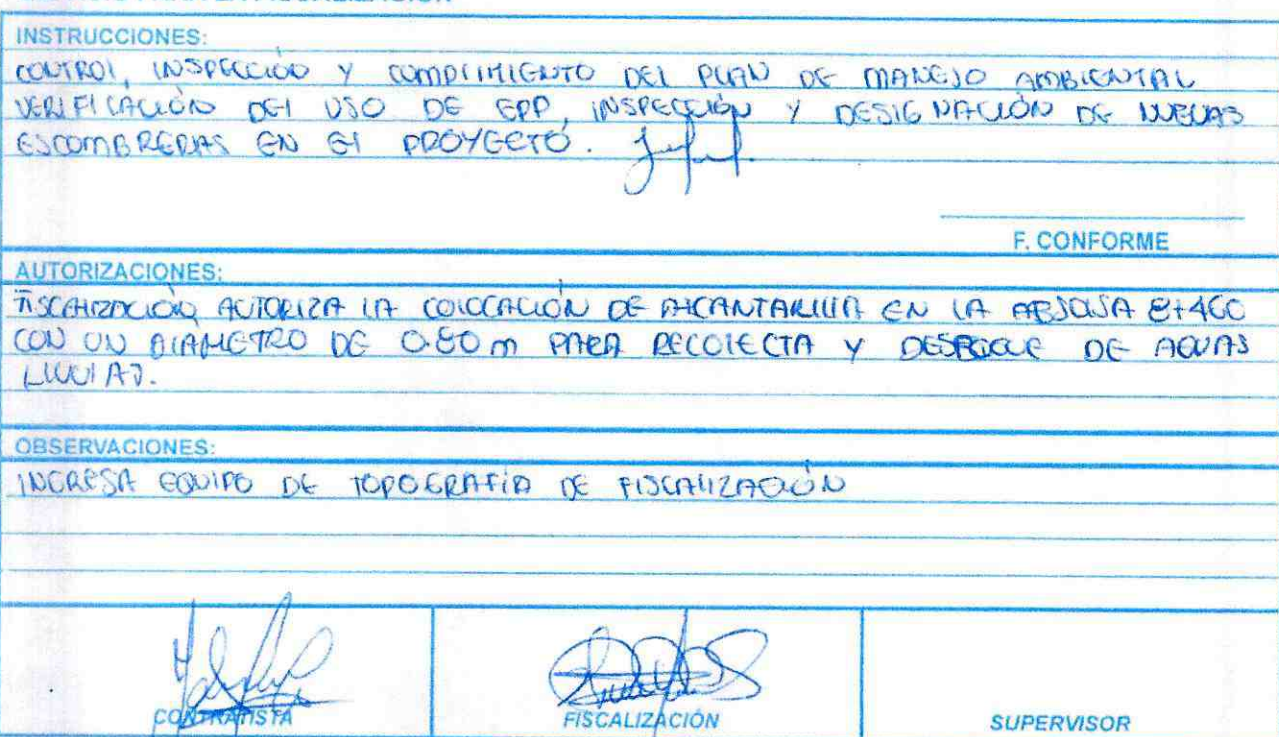 INSTRUCCIONES:
CONTROL, INSPECCIÓN Y CUMPLIMIENTO DEL PLAN DE MANEJO AMBIENTAL
VERIFICACIÓN DEL USO DE EPP, INSPECCIÓN Y DESIGNACIÓN DE NUEVAS
ESCOMBRERAS EN EL PROYECTO.
F. CONFORME
AUTORIZACIONES:
FISCALIZACIÓN AUTORIZA LA COLOCACIÓN DE ALCANTARILLA EN LA ABSCISA 8+460
CON UN DIAMETRO DE 0.80 m PARA RECOLECTA Y DESFOGUE DE AGUAS
LLUVIAS.
OBSERVACIONES:
INGRESA EQUIPO DE TOPOGRAFÍA DE FISCALIZACIÓN
CONTRATISTA FISCALIZACIÓN SUPERVISOR